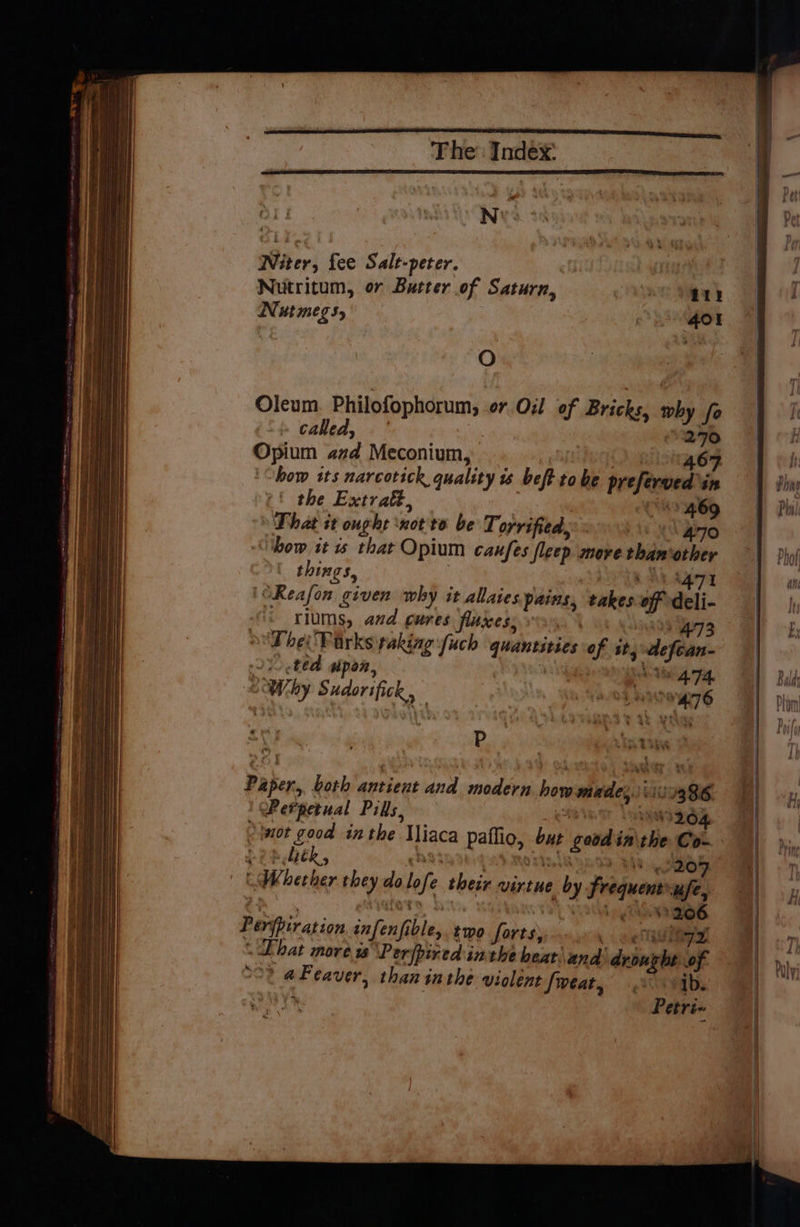 The Index.
N
Niter, ſee Salt-peter.
Nutritum, or Butter of Saturn, 111
Nutmegs, 401
O
Oleum Philoſophorum, or Oil of Bricks, why ſo
called, 270
Opium and Meconium, 467
how its narcotick quality is beſt to be preſerved in
the Extract, 469
That it ought not to be Torrified, 470
how it is that Opium cauſes ſleep more than other
things, 471
Reaſon given why it allaies pains, takes off deli-
riums, and cures fluxes, 473
The Turks taking ſuch quantities of it, deſcan-
ted upon, 474
Why Sudorifick, 476
P
Paper, both antient and modern how made, 386
Perpetual Pills, 204
not good in the Iliaca paſſio, but good in the Co-
lick, 207
Whether they do loſe their virtue by frequent uſe,
206
Perſpiration inſenſible, two ſorts,
That more is Perſpired in the heat and drought of
a Feaver, than in the violent ſweat, ib.
Petri-
Pet
Pet